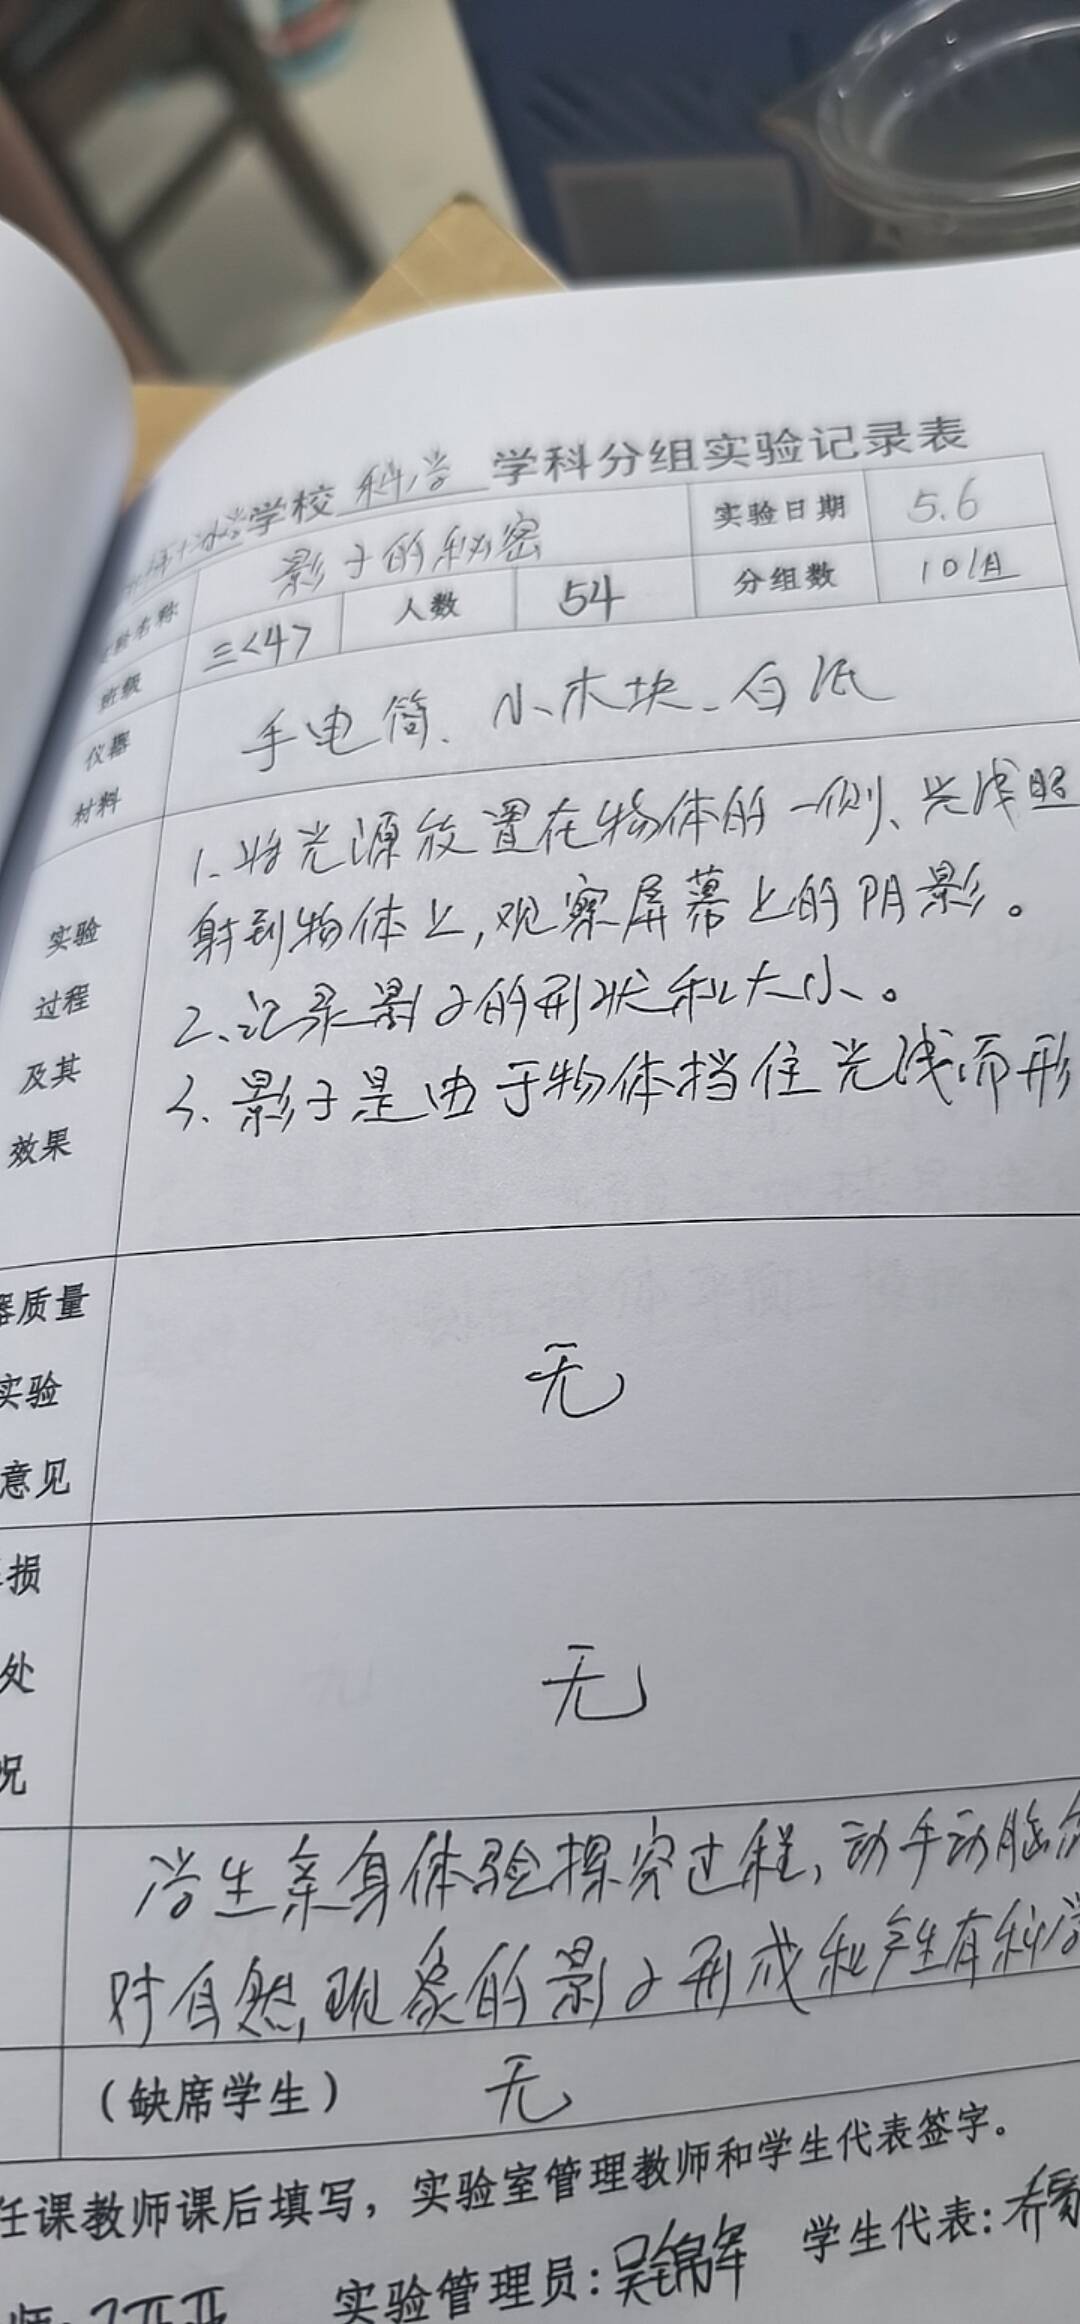 学校 科学 学科分组实验记录表
影子的秘密 实验日期 5.6
班级 三<4> 人数 54 分组数 10组
仪器 手电筒、小木块、白纸
材料
1、将光源放置在物体的一侧、光线照
实验 射到物体上,观察屏幕上的阴影。
过程 2、记录影子的形状和大小。
及其 3、影子是由于物体挡住光线而形
效果
器质量
实验 无
意见
损
处 无
况
学生亲身体验探究过程,动手动脑
对自然现象的影子形成和产生有科学
(缺席学生) 无
任课教师课后填写,实验室管理教师和学生代表签字。
实验管理员:吴锦军 学生代表: